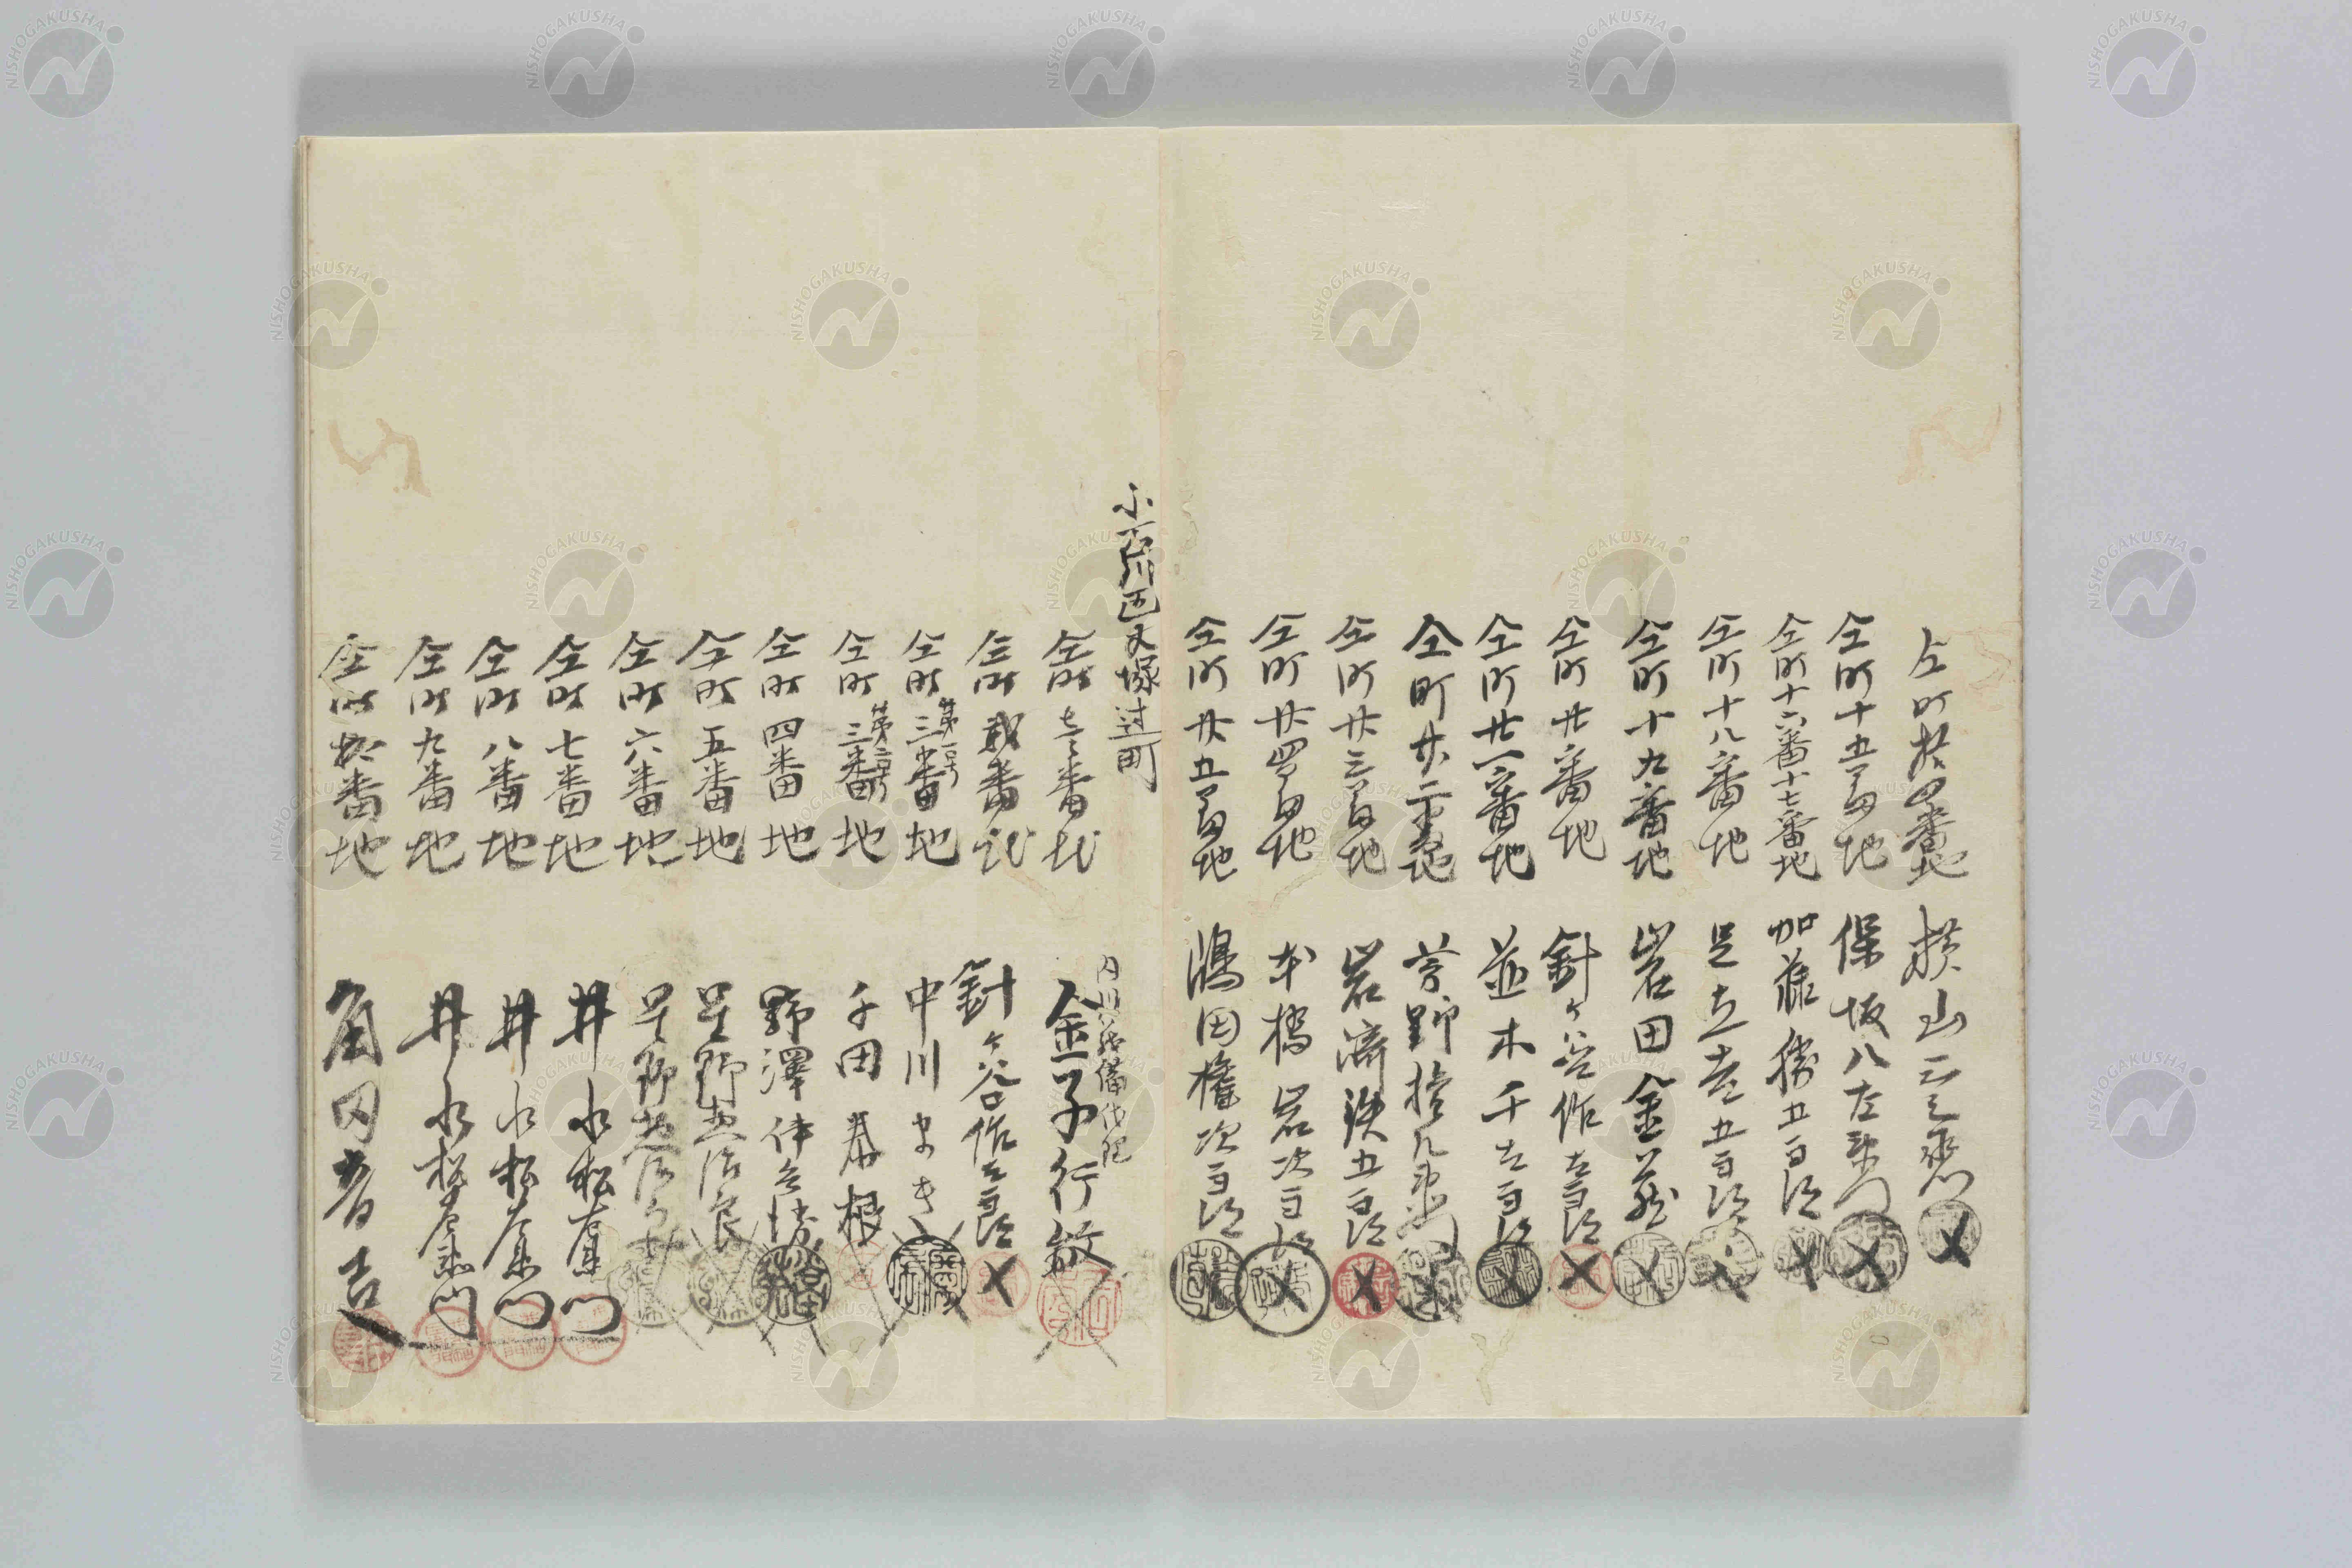 仝町拾四番地 横山三之丞
仝町十五番地 保坂八左衛門
仝町十六番十七番地 加藤勝五郎
仝町十八番地 足立 五郎
仝町十九番地 岩田金蔵
仝町廿番地 針ヶ谷作左郎
仝町廿一番地 並木千太郎
仝町廿二番地 菅野 衛門
仝町廿三番地 岩 五郎
仝町廿四番地 本橋岩次郎
仝町廿五番地 次郎
小石川区大塚辻町
仝町壱番地 金子行敏
仝町貳番地 針ヶ谷作左郎
仝町第一号三番地 中川まき
仝町第二号三番地 千田春根
仝町四番地 野澤伊 勝
仝町五番地 星野
仝町六番地 星野
仝町七番地 井水松左衛門
仝町八番地 井水松左衛門
仝町九番地 井水松左衛門
仝町拾番地 角田 吉
NISHOGAKUSHA